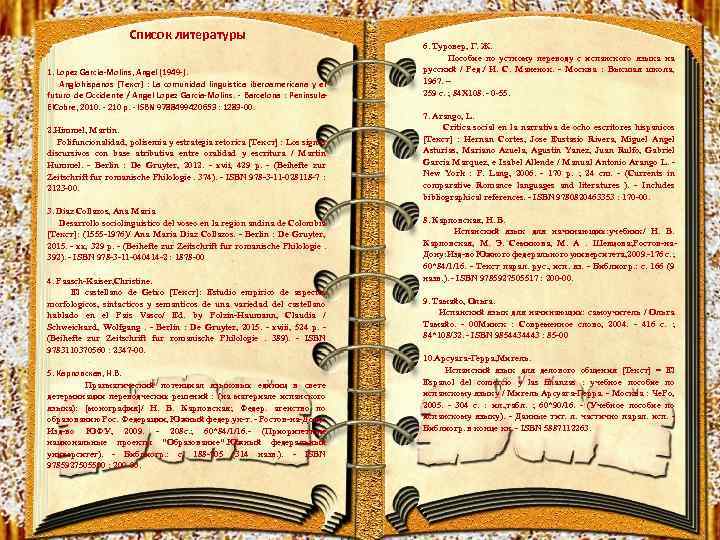 Список литературы
1. Lopez Garcia-Molins, Angel (1949-).
Anglohispanos [Текст] : La comunidad linguistica iberoamericana y el
futuro de Occidente / Angel Lopez Garcia-Molins. - Barcelona : Peninsula-
ElCobre, 2010. - 210 p. - ISBN 9788499420653 : 1289-00.
2.Hummel, Martin.
Polifuncionalidad, polisemia y estrategia retorica [Текст] : Los signos
discursivos con base atributiva entre oralidad y escritura / Martin
Hummel. - Berlin : De Gruyter, 2012. - xvii, 429 p. - (Beihefte zur
Zeitschrift fur romanische Philologie . 374). - ISBN 978-3-11-028118-7 :
2123-00.
3. Diaz Collazos, Ana Maria
Desarrollo sociolinguistico del voseo en la region andina de Colombia
[Текст]: (1555-1976)/ Ana Maria Diaz Collazos. - Berlin : De Gruyter,
2015. - xx, 329 p. - (Beihefte zur Zeitschrift fur romanische Philologie .
392). - ISBN 978-3-11-040414-2 : 1878-00.
4. Paasch-Kaiser,Christine.
El castellano de Getxo [Текст]: Estudio empirico de aspectos
morfologicos, sintacticos y semanticos de una variedad del castellano
hablado en el Pais Vasco/ Ed. by Polzin-Haumann, Claudia /
Schweickard, Wolfgang . - Berlin : De Gruyter, 2015. - xviii, 524 p. -
(Beihefte zur Zeitschrift fur romanische Philologie . 389). - ISBN
9783110370560 : 2347-00.
5. Карповская, Н.В.
Прагматический потенциал языковых единиц в свете
детерминации переводческих решений : (на материале испанского
языка): [монография]/ Н. В. Карповская; Федер. агенство по
образованию Рос. Федерации, Южный федер.ун-т. - Ростов-на-Дону:
Изд-во ЮФУ, 2009. - 208с.; 60*84/1/16.- (Приоритетные
национальные проекты "Образование".Южный федеральный
университет). - Библиогр.: с. 188-205 (314 назв.). - ISBN
9785927505500 : 200-00.
6. Туровер, Г. Ж.
Пособие по устному переводу с испанского языка на
русский / Ред./ Н. С. Мненок. - Москва : Высшая школа,
1967. –
259 с. ; 84Х108. - 0-55.
7. Arango, L.
Critica social en la narrativa de ocho escritores hispanicos
[Текст] : Hernan Cortes, Jose Eustasio Rivera, Miguel Angel
Asturias, Mariano Azuela, Agustin Yanez, Juan Rulfo, Gabriel
Garcia Marquez, e Isabel Allende / Manual Antonio Arango L. -
New York : P. Lang, 2006. - 170 p. ; 24 cm. - (Currents in
comparative Romance languages and literatures ). - Includes
bibliographical references. - ISBN 9780820463353 : 170-00.
8. Карповская, Н. В.
Испанский язык для начинающих:учебник/ Н. В.
Карповская, М. Э. Семикова, М. А . Шевцова;Ростов-на-
Дону:Изд-во Южного федерального университета,2009.-176 с. ;
60*84/1/16. - Текст парал. рус., исп. яз. - Библиогр.: с. 166 (9
назв.). - ISBN 9785927505517 : 200-00.
9. Тамайо, Ольга.
Испанский язык для начинающих: самоучитель / Ольга
Тамайо. - 00Минск : Современное слово, 2004. - 416 с. ;
84*108/32. - ISBN 9854434443 : 85-00
10.Арсуага-Герра,Мигель.
Испанский язык для делового общения [Текст] = El
Espanol del comercio y las finanzas : учебное пособие по
испанскому языку / Мигель Арсуага-Герра. - Москва : ЧеРо,
2005. - 304 с. : ил.,табл. ; 60*90/16. - (Учебное пособие по
испанскому языку). - Данные тит. л. частично парал. исп. -
Библиогр. в конце кн. - ISBN 5887112263.